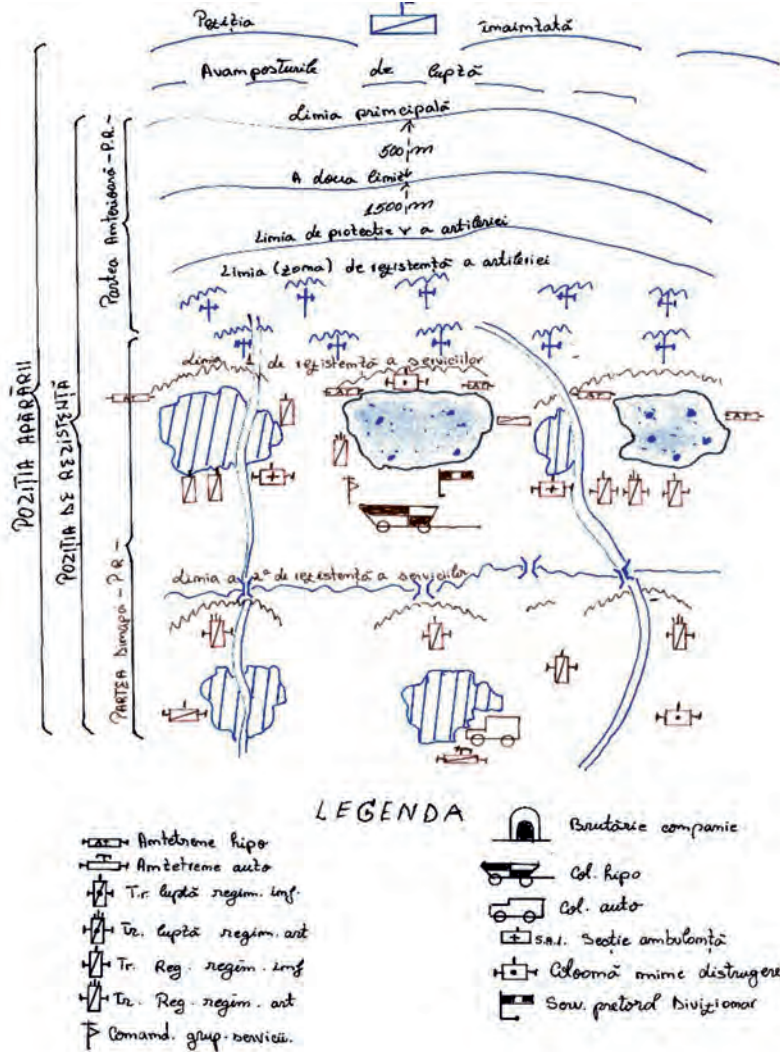 Poziția înaintată
Avamposturile de luptă
Linia principală
500 m
A doua linie
1500 m
Linia de protecție a artileriei
Linia (zona) de rezistență a artileriei
Linia 1 de rezistență a serviciilor
Linia a 2ª de rezistență a serviciilor
POZIȚIA APĂRĂRII
POZIȚIA DE REZISTENȚĂ
Partea Anterioară - P.R. -
PARTEA Dinapoi - P.R. -
LEGENDA
Antetrene hipo
Antetrene auto
Tr. luptă regim. inf.
Tr. luptă regim. art
Tr. Reg. regim. inf
Tr. Reg. regim. art
Comand. grup. servicii.
Brutărie companie
Col. hipo
Col. auto
S.A.I. Secție ambulanță
Coloană mine distrugere
Serv. pretoral Divizionar